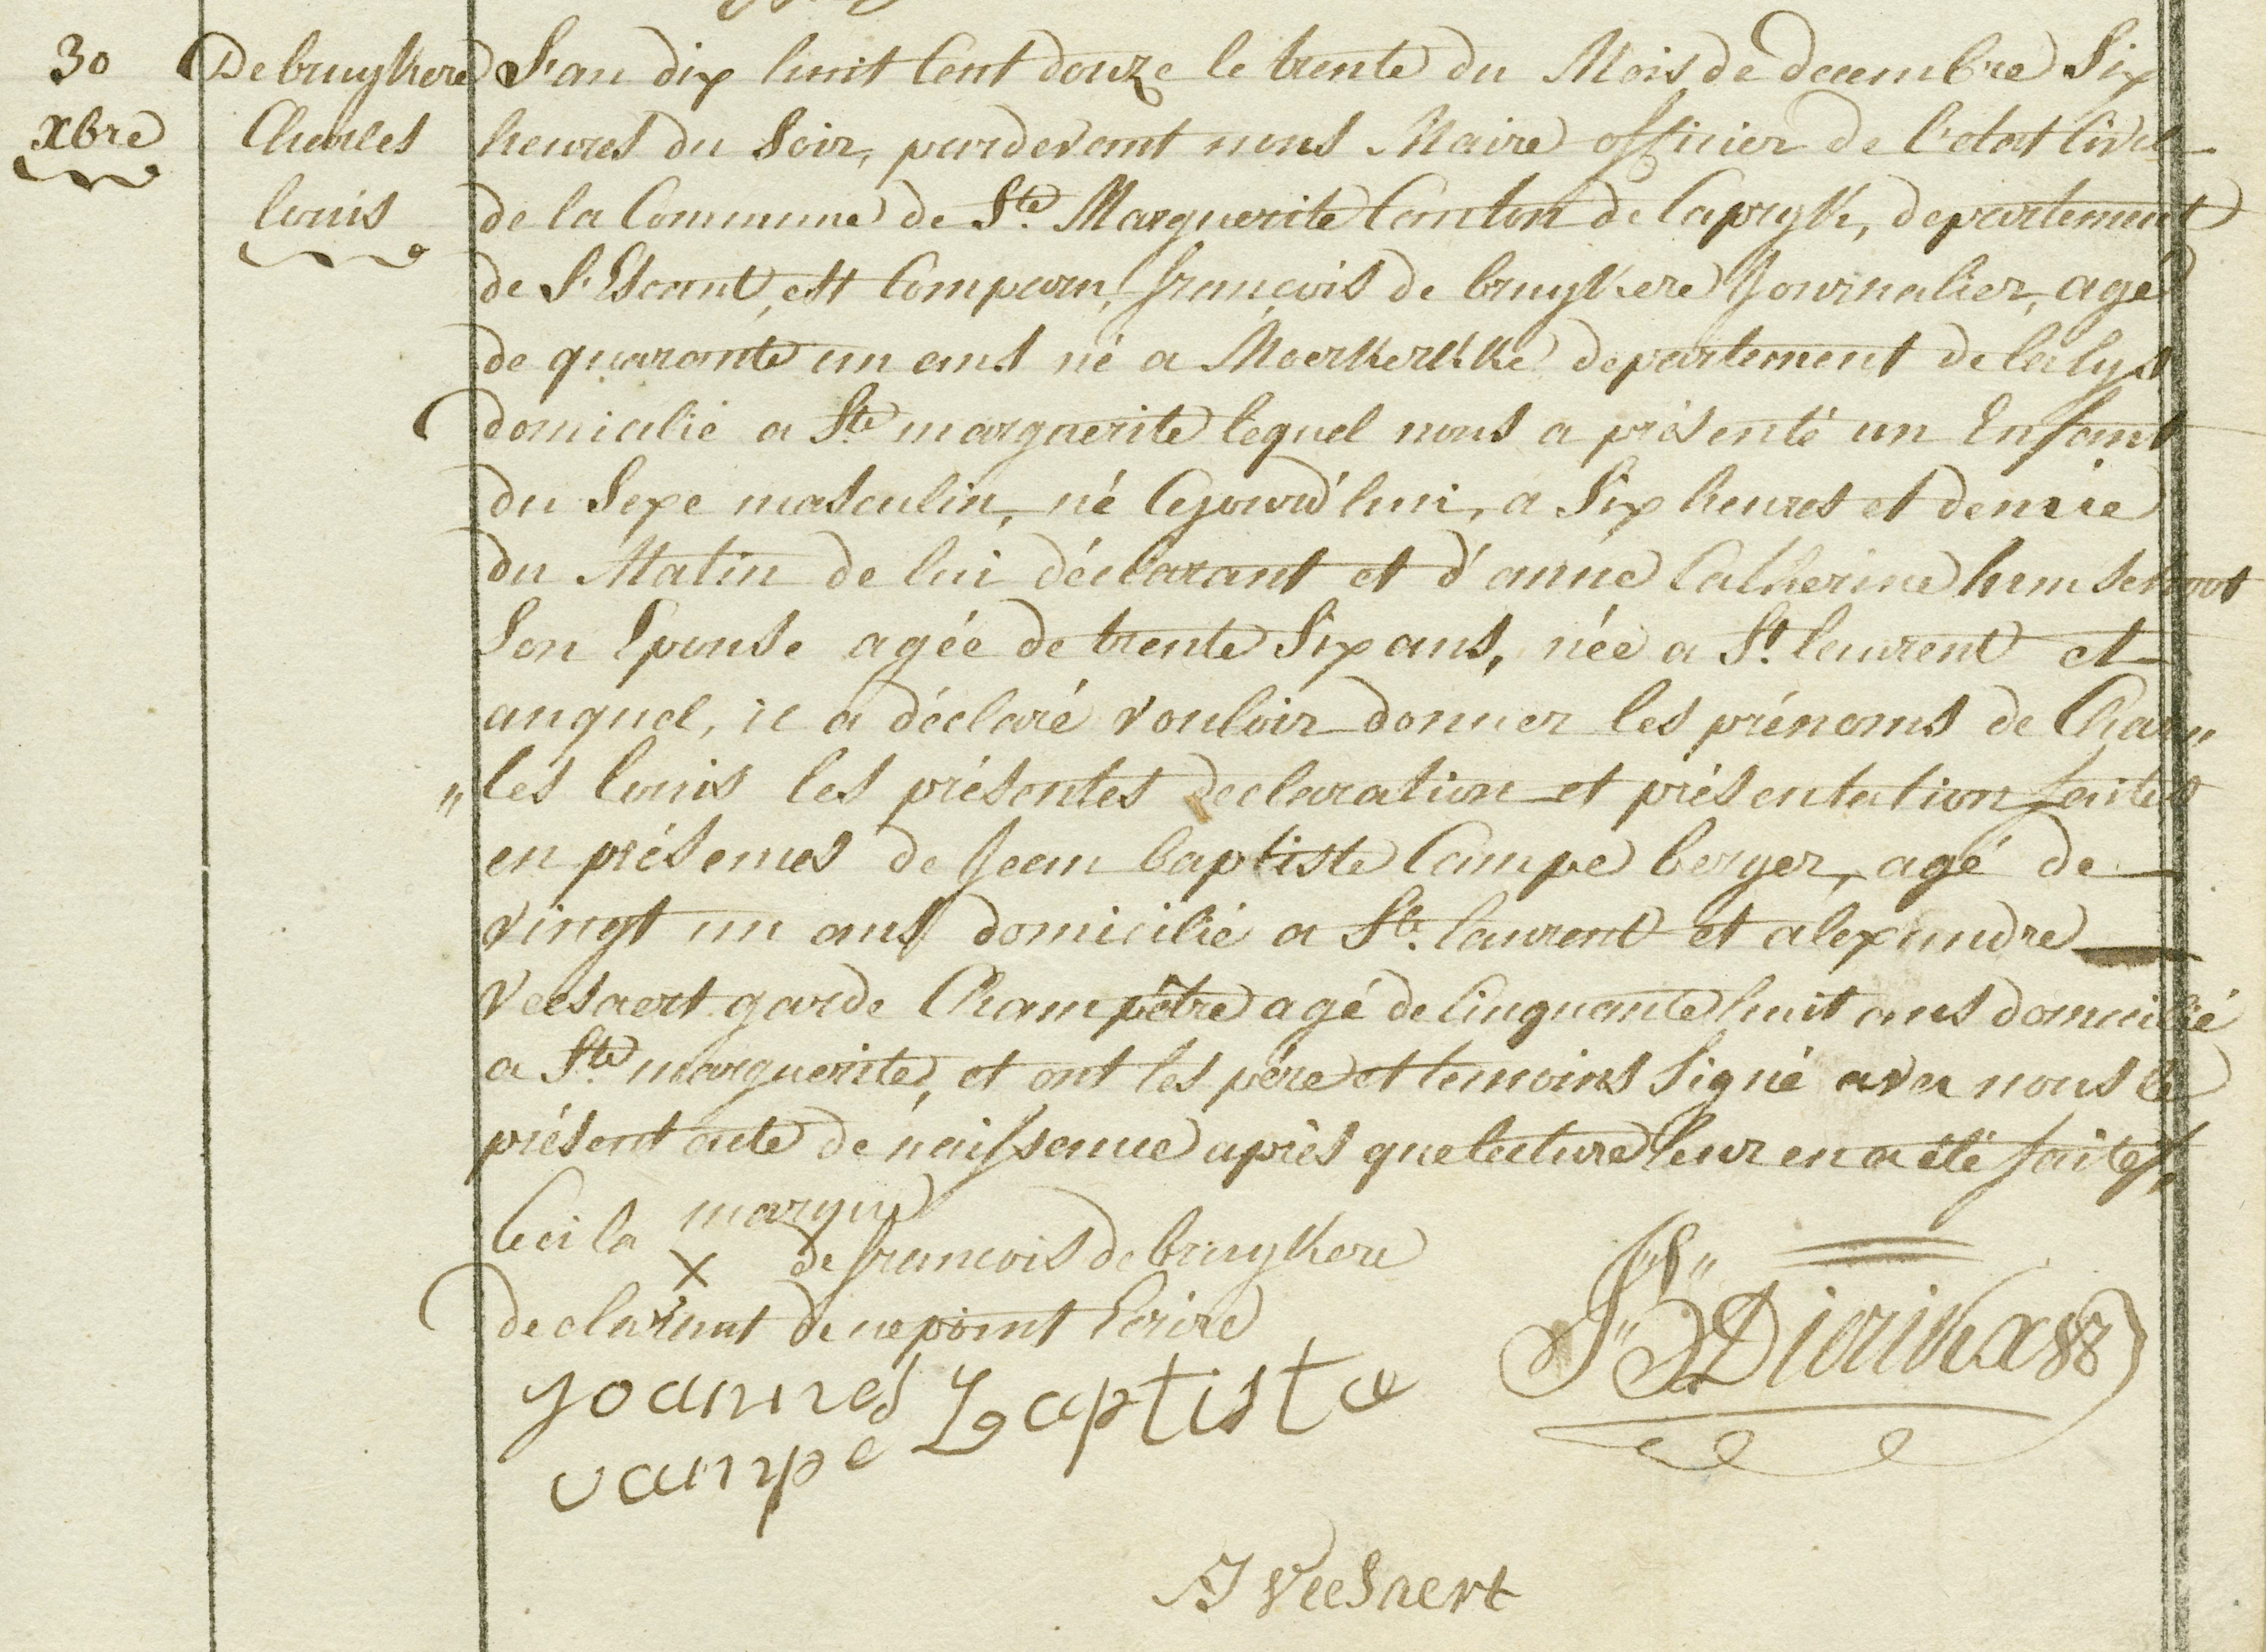 30
xbre
Debruykere
Charles
louis
L'an dix huit Cent douze le trente du Mois de decembre Six
heures du Soir, pardevant nous Maire officier de l'etat Civil
de la Commune de Ste Marguerite Canton de Capryk, departement
de L'Escaut, est Comparu, françois de bruykere Journalier, agé
de quarante un ans né a Moerkerkke departement de la lys
domicilié a Ste marguerite lequel nous a présenté un Enfant
du Sexe masculin, né Cejourd'hui, a Six heures et demie
du Matin de lui déclarant et d'anne Catherine
Son Epouse agée de trente Six ans, née a St. laurent et
auquel, il a déclaré vouloir donner les prénoms de Char„
„les louis les présentes declaration et présentation faites
en présences de Jean baptiste Campe berger, agé de
vingt un ans domicilié a St. laurent et alexandre
Veesaert garde Champêtre agé de Cinquante huit ans domicilié
a Ste marguerite, et ont les père et temoins Signé avec nous le
présent acte de naissance après que lecture leur en a été faite
Ceci la marque
X de francois debruykere
declarant de ne point Ecrire
Joannes Baptiste
campe
Dierikx
J Veesaert